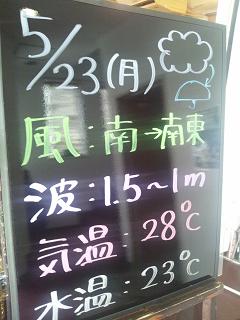 5/23(月)
風:南→南東
波:1.5~1m
気温:28℃
水温:23℃